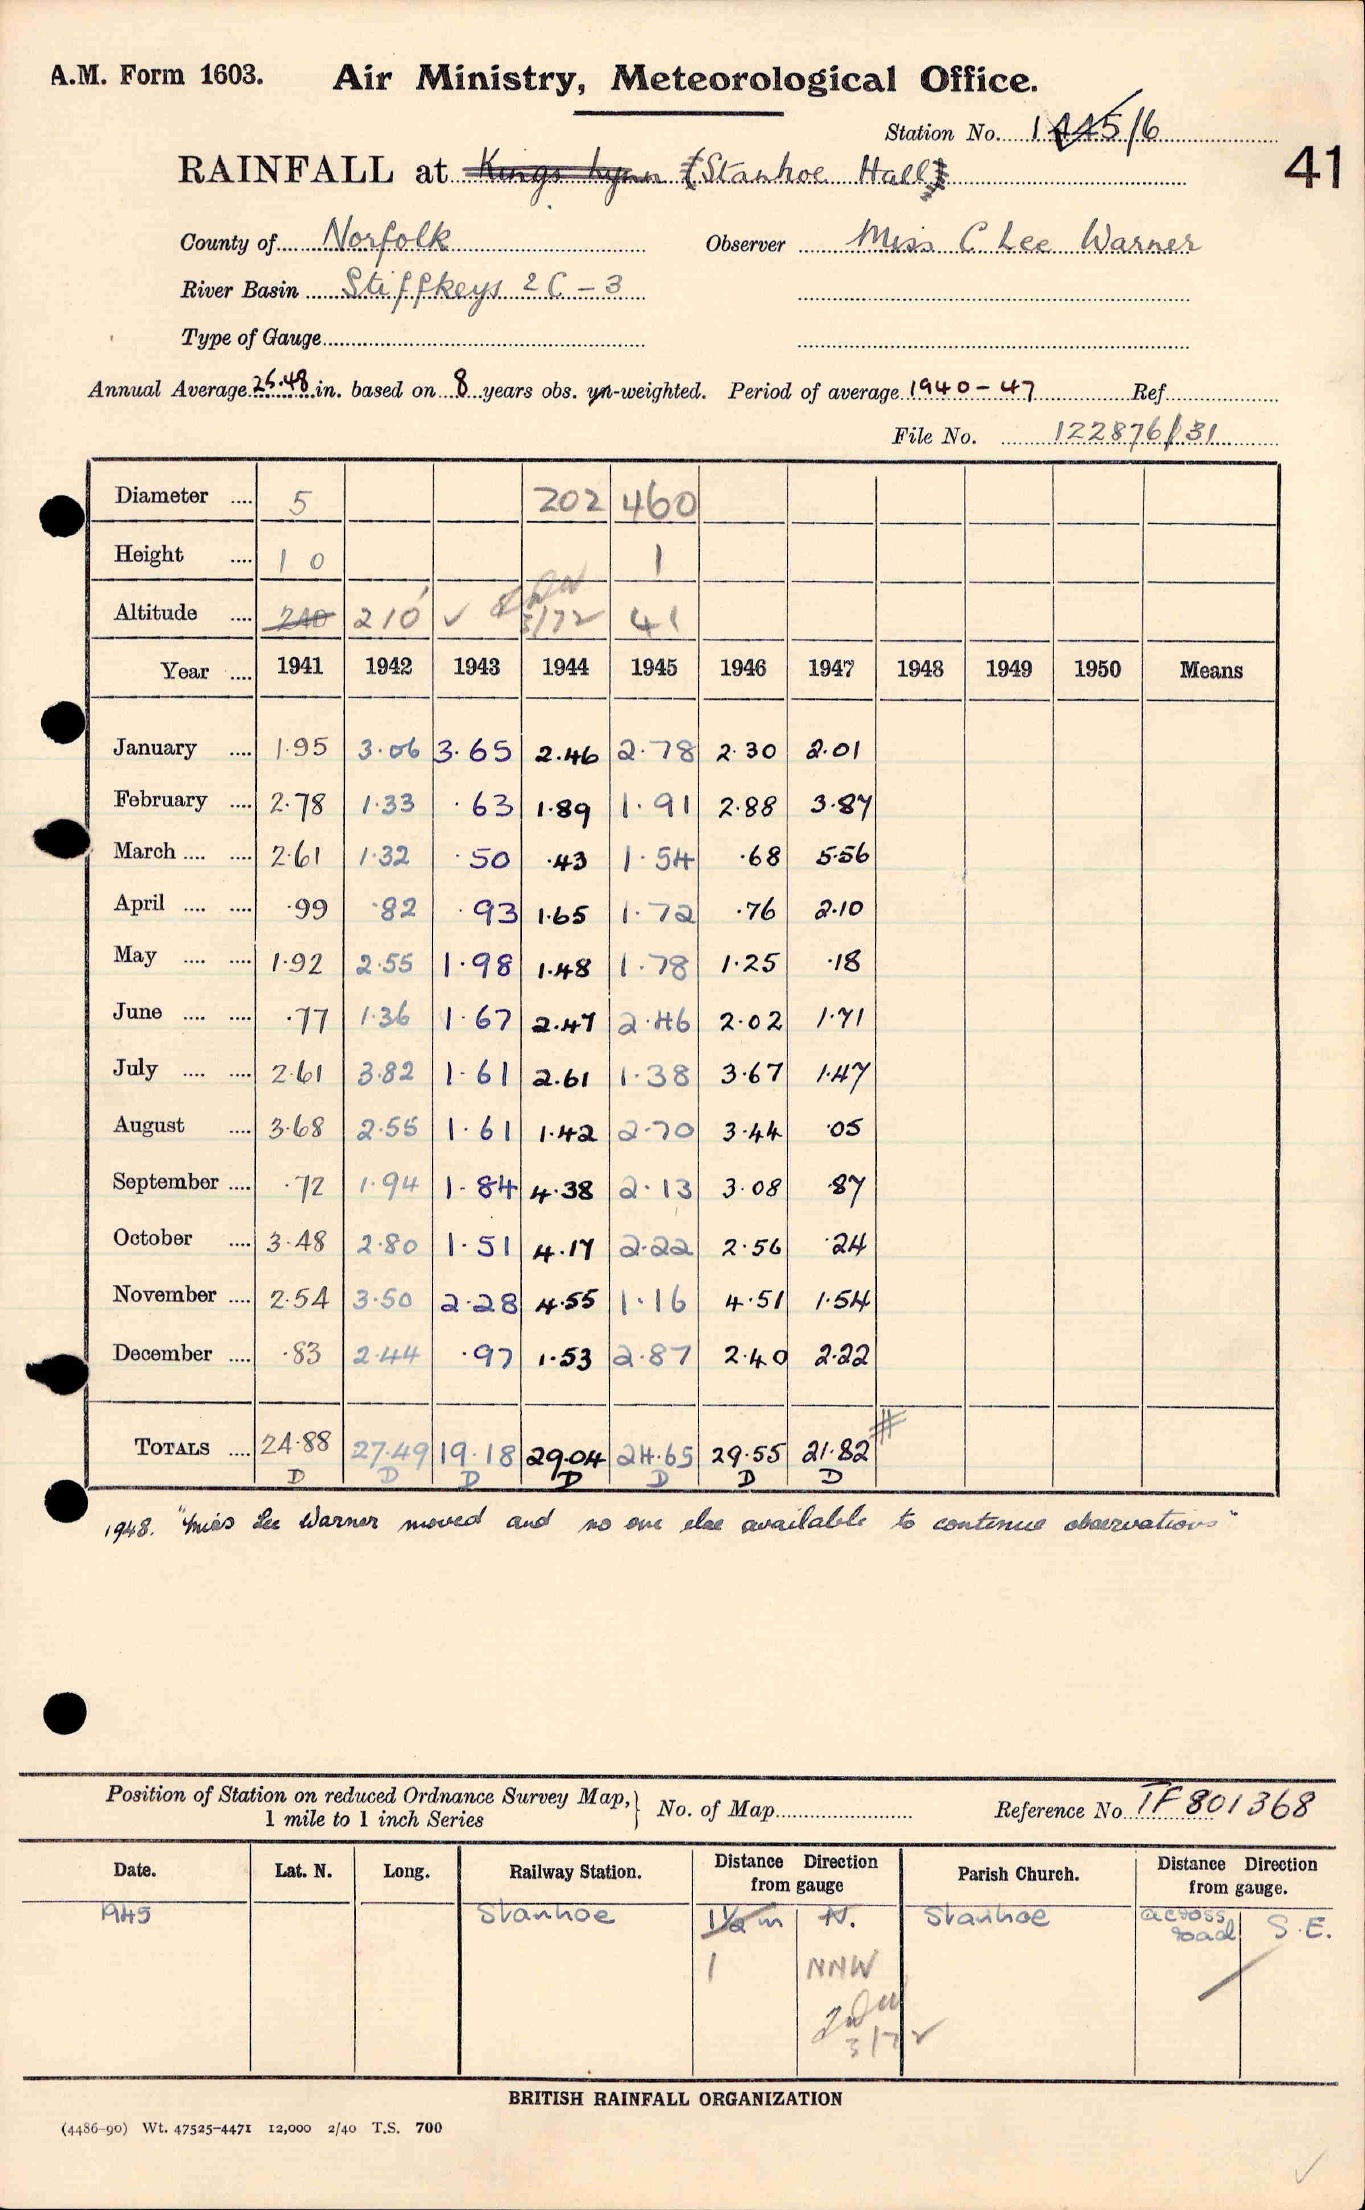 A.M. Form 1603. Air Ministry, Meteorological Office.
Station No. 1445/6
RAINFALL at Kings Lynn (Stanhoe Hall)
41
County of Norfolk Observer Miss C Lee Warner
River Basin Stiffkeys 2C-3
Type of Gauge
Annual Average 25.48 in. based on 8 years obs. un-weighted. Period of average 1940-47 Ref
File No. 122876/31
Diameter 5 202 460
Height 1 0 1
Altitude 240 210' ✓ 3/72 41
Year 1941 1942 1943 1944 1945 1946 1947 1948 1949 1950 Means
January 1.95 3.06 3.65 2.46 2.78 2.30 2.01
February 2.78 1.33 .63 1.89 1.91 2.88 3.87
March 2.61 1.32 .50 .43 1.54 .68 5.56
April .99 .82 .93 1.65 1.72 .76 2.10
May 1.92 2.55 1.98 1.48 1.78 1.25 .18
June .77 1.36 1.67 2.47 2.46 2.02 1.71
July 2.61 3.82 1.61 2.61 1.38 3.67 1.47
August 3.68 2.55 1.61 1.42 2.70 3.44 .05
September .72 1.94 1.84 4.38 2.13 3.08 .87
October 3.48 2.80 1.51 4.17 2.22 2.56 .24
November 2.54 3.50 2.28 4.55 1.16 4.51 1.54
December .83 2.44 .97 1.53 2.87 2.40 2.22
TOTALS 24.88 27.49 19.18 29.04 24.65 29.55 21.82 #
D D D D D D D
1948. "Miss Lee Warner moved and no one else available to continue observations"
Position of Station on reduced Ordnance Survey Map,
1 mile to 1 inch Series
No. of Map Reference No TF 801368
Date. Lat. N. Long. Railway Station. Distance Direction from gauge Parish Church. Distance Direction from gauge.
1945 Stanhoe 1½ m N. Stanhoe across road S.E.
1 NNW
3/72
BRITISH RAINFALL ORGANIZATION
(4486-90) Wt. 47525-4471 12,000 2/40 T.S. 700